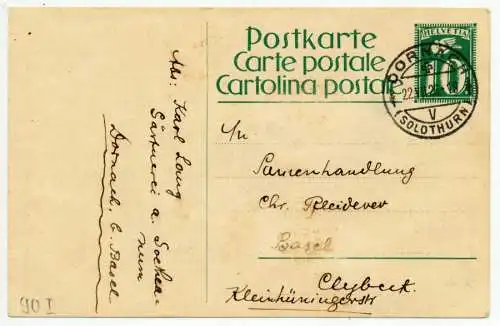 Postkarte
Carte postale
Cartolina postale
HELVETIA
10
DORNACH
SOLOTHURN
V
Abs: Karl Lang
Gärtnerei a. Goethea-
num
Dornach, b. Basel
T/n
Samenhandlung
Chr. Pleiderer
Basel
Clybeck
Kleinhüningerstr
90 I